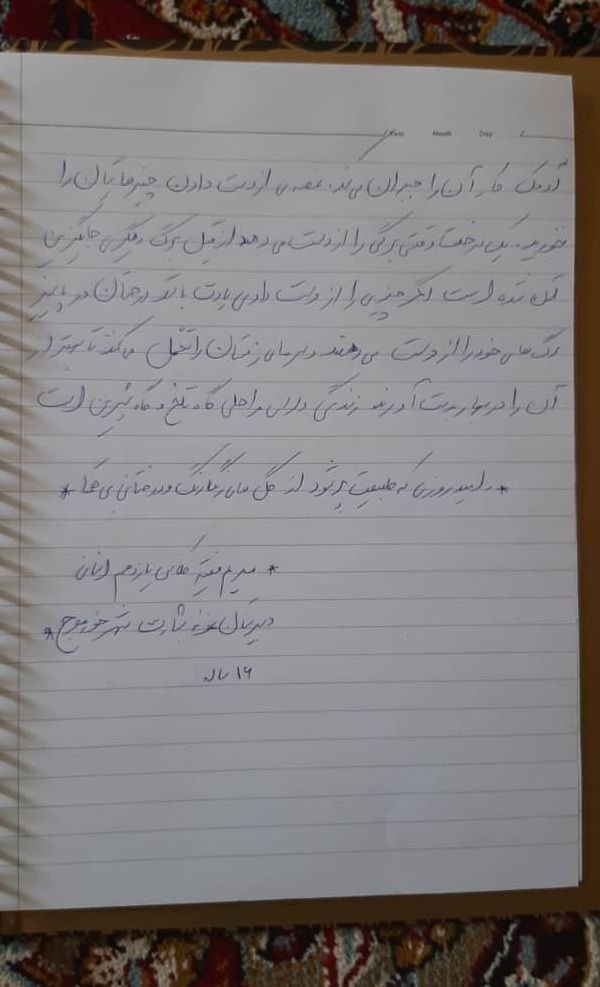 Year Month Day
آدمک کار آن را جبران می‌کند. غصه ی از دست دادن چیزهایتان را
نخورید. یک درخت وقتی برگی را از دست می دهد از قبل برگ دیگری جایگزین
آن شده است اگر چیزی را از دست دادی یادت باشد درختان در پاییز
برگ های خود را از دست می دهند و سرمای زمستان را تحمل می کنند تا بهتر از
آن را در بهار بدست آورند زندگی دارای مراحلی گاه تلخ و گاه شیرین است
* به امید روزی که طبیعت پر شود از گل های رنگارنگ و درختانی بی همتا *
* مریم فقیه کلاس یازدهم انسانی
دبیرستان نمونه بشارت شهر خورموج *
۱۶ ساله